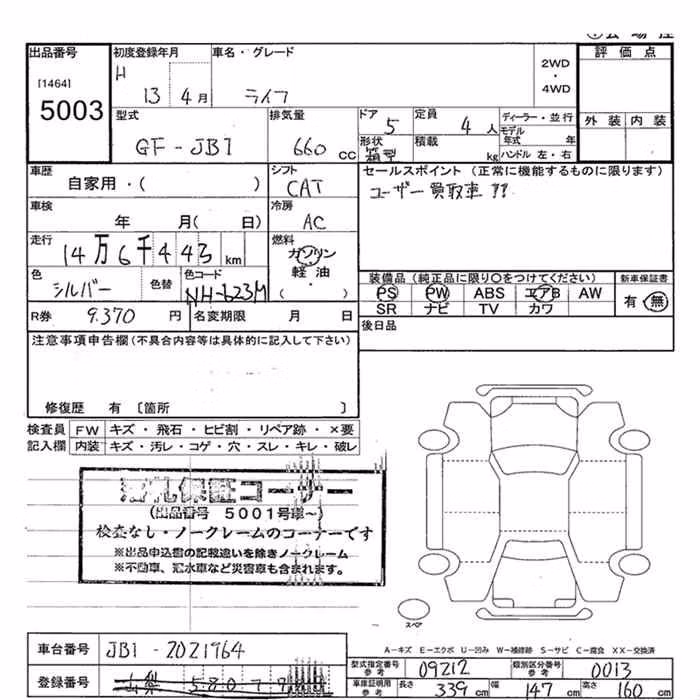 出品番号
[1464]
5003
初度登録年月
H 13 4月
車名・グレード
ライフ
2WD
・
4WD
評価点
外装 内装
型式
GF-JB1
排気量
660 cc
ドア
5
定員
4 人
形状
箱型
積載
kg
ディーラー・並行
モデル年式 年
ハンドル 左・右
車歴
自家用・( )
シフト
CAT
セールスポイント (正常に機能するものに限ります)
ユーザー買取車!!
車検
年 月( 日)
冷房
AC
走行
14万6千443 km
燃料
ガソリン
軽油
( )
色
シルバー
色替
色コード
NH-623M
装備品(純正品に限り○をつけてください)
PS PW ABS エアB AW
SR ナビ TV カワ
新車保証書
有・無
R券 9.370 円
名変期限 月 日
後日品
注意事項申告欄(不具合内容等は具体的に記入して下さい)
修復歴 有 〔箇所 〕
検査員記入欄
FW キズ・飛石・ヒビ割・リペア跡・×要
内装 キズ・汚レ・コゲ・穴・スレ・キレ・破レ
保証コーナー
(出品番号 5001号車~)
検査なし・ノークレームのコーナーです
※出品申込書の記載違いを除きノークレーム
※不動車、冠水車など災害車も含まれます。
スペア
A-キズ E-エクボ U-凹み W-補修跡 S-サビ C-腐食 XX-交換済
車台番号 JB1-2021964
型式指定番号 参考 09212
類別区分番号 参考 0013
登録番号 山梨 580
車庫証明用 参考 長さ 339 cm 幅 147 cm 高さ 160 cm